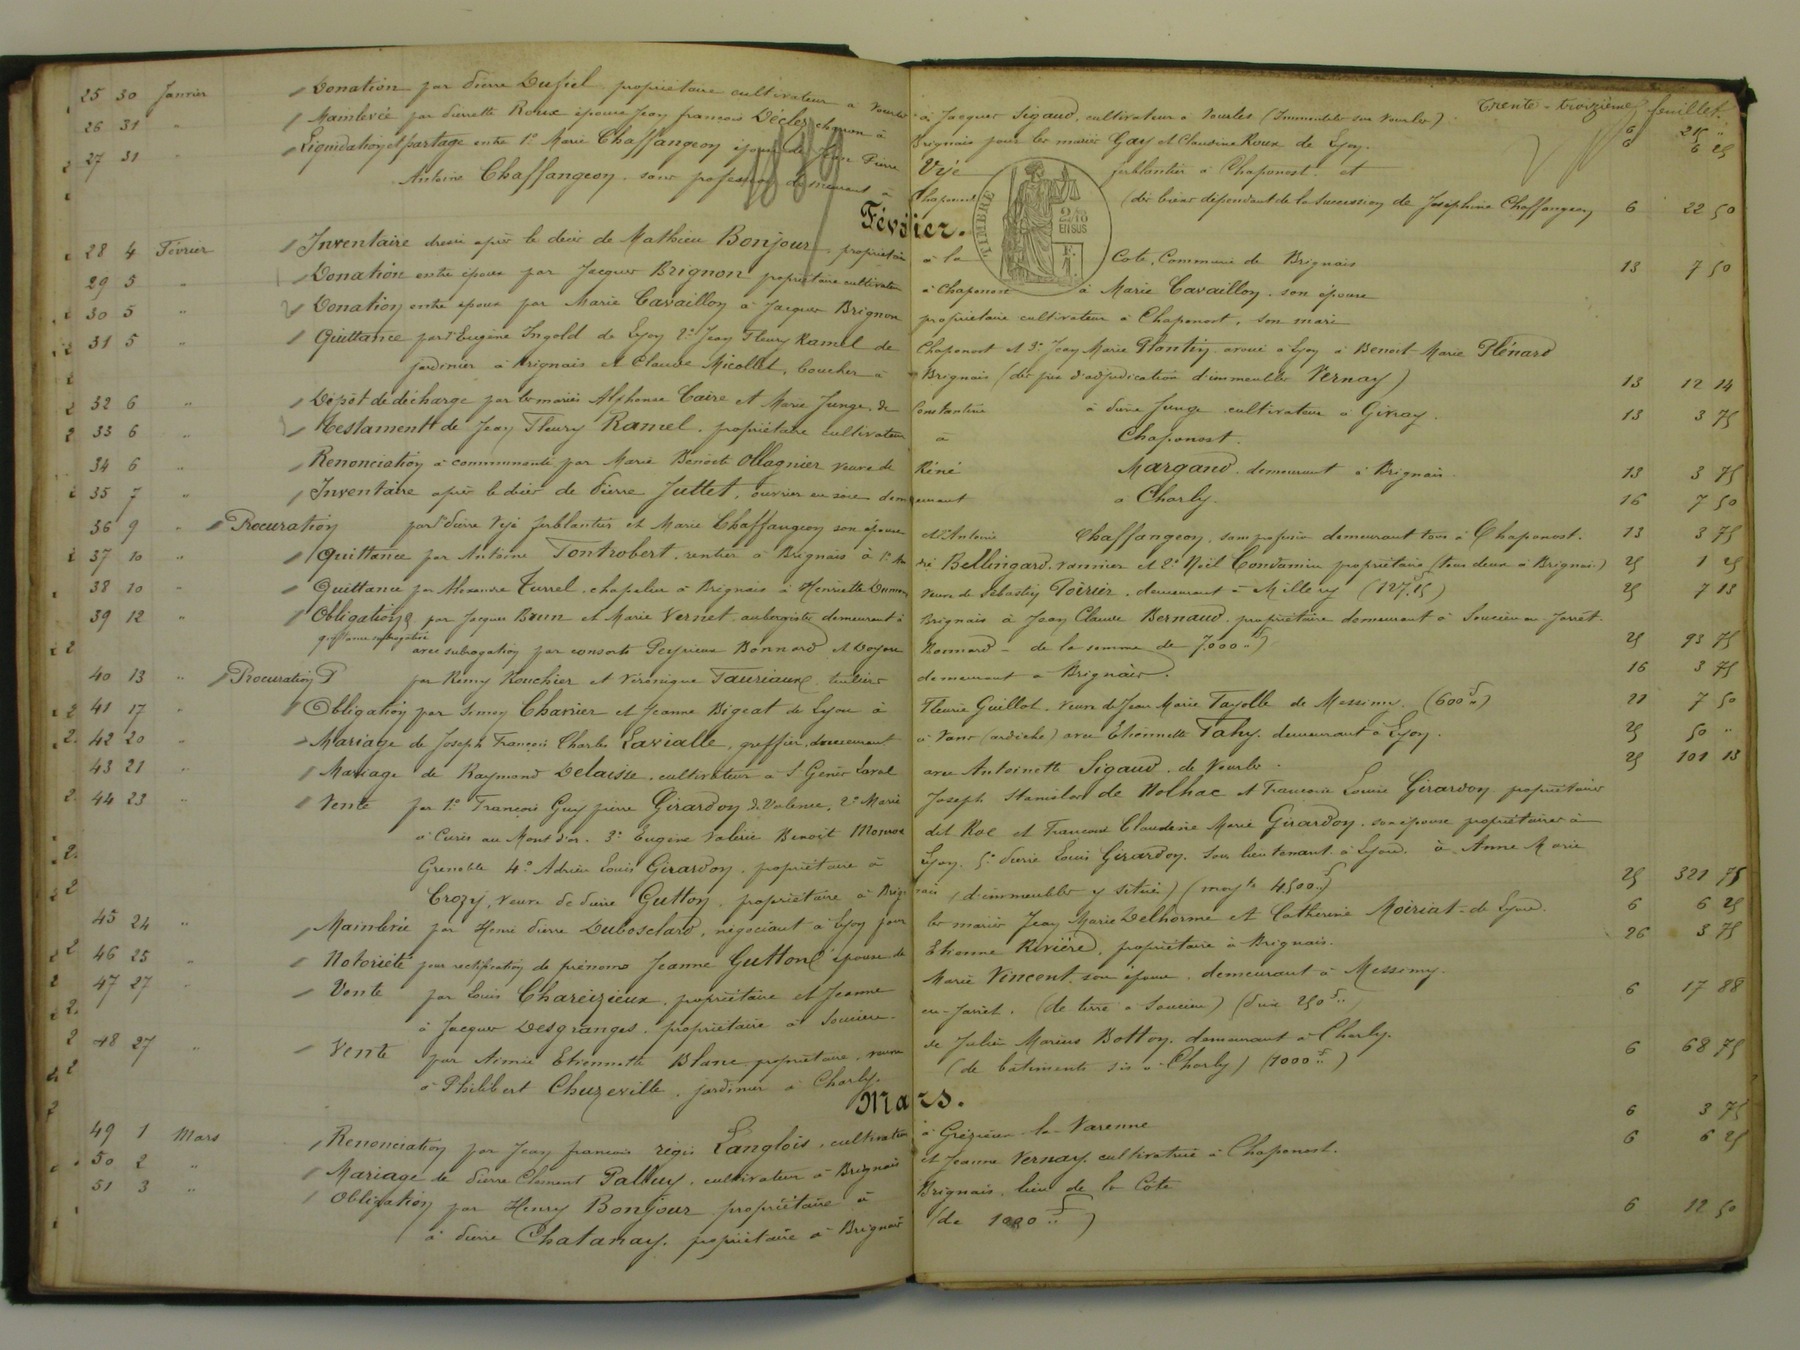 Trente-troisième feuillet.
25 30 Janvier Donation par Pierre propriétaire cultivateur à Vourles à Jacques Sigaud, cultivateur à Vourles (Immeubles sur Vourles) 6 25 "
26 31 " Mainlevée par Pierrette Roux épouse Jean françois Déclez charron à Brignais pour les mariés Gay et Claudine Roux de Lyon. 6 6 25
27 31 " Liquidation et partage entre 1° Marie Chaffangeon épouse de Jean Pierre Véjé ferblantier à Chaponost. et
Antoine Chaffangeon. sans profession demeurant à Chaponost (des biens dépendant de la succession de Joséphine Chaffangeon 6 22 50
TIMBRE
2/10 EN SUS
Février.
28 4 Février Inventaire dressé après le décès de Mathieu Bonjour propriétaire à la Cote, Commune de Brignais 13 7 50
29 5 " Donation entre époux par Jacques Brignon propriétaire cultivateur à Chaponost à Marie Cavaillon. son épouse
30 5 " Donation entre époux par Marie Cavaillon à Jacques Brignon propriétaire cultivateur à Chaponost, son mari
31 5 " Quittance par 1° Eugène Ingold de Lyon 2° Jean Fleury Ramel de Chaponost et 3° Jean Marie Plantin avoué à Lyon à Benoit Marie Plénard
jardinier à Brignais et Claude Micollet, boucher à Brignais (des prix d'adjudication d'immeubles Vernay) 13 12 14
32 6 " Dépôt de décharge par les mariés Alphonse Caire et Marie Junge, de Constantine à Pierre Junge cultivateur à Givray. 13 3 75
33 6 " Testament de Jean Fleury Ramel. propriétaire cultivateur à Chaponost.
34 6 " Renonciation à communauté par Marie Benoite Ollagnier veuve de Réné Margand. demeurant à Brignais. 13 3 75
35 7 " Inventaire après le décès de Pierre Juttet, ouvrier en soie demeurant à Charly. 16 7 50
36 9 " Procuration par 1° Pierre Véjé ferblantier et Marie Chaffangeon son épouse et 2° Antoine Chaffangeon, sans profession demeurant tous à Chaponost. 13 3 75
37 10 " Quittance par Antoine Tontrobert. rentier à Brignais à 1° André Bellingard. vannier et 2° Noël Condamin propriétaire (tous deux à Brignais) 25 1 25
38 10 " Quittance par Alexandre Turrel. chapelier à Brignais à Henriette veuve de Sébastien Poirier. demeurant à Millery 25 7 13
39 12 " Obligation par Jacques Brun et Marie Vernet. aubergistes demeurant à Brignais à Jean Claude Bernaud. propriétaire demeurant à Soucieu-en-Jarrêt.
quittance subrogative avec subrogation par consorts Peyrieux Bonnard et Doyen Bonnard - de la somme de 7.000 " 25 93 75
40 13 " Procuration par Rémy Rouchier et Véronique Tauriaux. demeurant à Brignais. 16 3 75
41 17 " Obligation par Simon Charrier et Jeanne Bigeat de Lyon à Fleurie Guillot. veuve de Jean Marie Fayolle de Messimy. (600 f ") 21 7 50
42 20 " Mariage de Joseph François Charles Lavialle, greffier, demeurant à Vans (ardèche) avec Etiennette Fahy. demeurant à Lyon. 25 50 "
43 21 " Mariage de Raymond Delaisse. cultivateur à St Genis Laval avec Antoinette Sigaud. de Vourles. 25 101 13
44 23 " Vente par 1° François Guy pierre Girardon de Valence, 2° Marie Joseph Stanislas de Nolhac et Françoise Louise Girardon propriétaires
à Curis au Mont d'or. 3° Eugène Valérie Benoît Monroe dit Roe et Françoise Claudine Marie Girardon. son épouse propriétaires à
Grenoble 4° Adrien Louis Girardon. propriétaire à Lyon. 5° Pierre Louis Girardon. Sous lieutenant à Lyon. à Anne Marie
Crozy, veuve de Pierre Gutton. propriétaire à Brignais (d'immeubles y situés) (moy. 4500 f ") 25 321 75
45 24 " Mainlevée par Henri Pierre Dubosclard, négociant à Lyon pour les mariés Jean Marie Delhorme et Catherine Moiriat de Lyon. 6 6 25
46 25 " Notoriété pour rectification de prénoms Jeanne Gutton épouse de Etienne Rivière, propriétaire à Brignais. 26 3 75
47 27 " Vente par Louis Chareizieux. propriétaire et Jeanne Marie Vincent. son épouse. demeurant à Messimy.
à Jacques Desgranges. propriétaire à Soucieu-en-Jarret. (de terre à Soucieu) (Prix 250 f ") 6 17 88
48 27 " Vente par Aimée Etiennette Blanc propriétaire, veuve de Julien Marius Botton. demeurant à Charly.
à Philibert Chuzeville. jardinier à Charly. (de bâtiments sis à Charly) (1000 f ") 6 68 75
Mars.
49 1 Mars Renonciation par Jean françois régis Langlois. cultivateur à Grézieu-la-Varenne 6 3 75
50 2 " Mariage de Pierre Clément Palluy. cultivateur à Brignais et Jeanne Vernay. cultivatrice à Chaponost. 6 6 25
51 3 " Obligation par Henry Bonjour propriétaire à Brignais, lieu de la Côte
à Pierre Chatanay. propriétaire à Brignais (de 1000 " f) 6 12 50